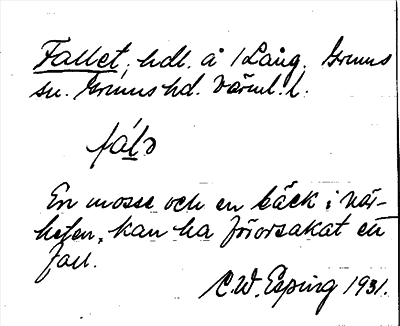 Fallet, hdl. å 1 Lång, Grums
sn. Grums hd. Värml. l.
fáḷə
En mosse och en bäck i när-
heten, kan ha förorsakat ett
fall.
C.W. Esping 1931.